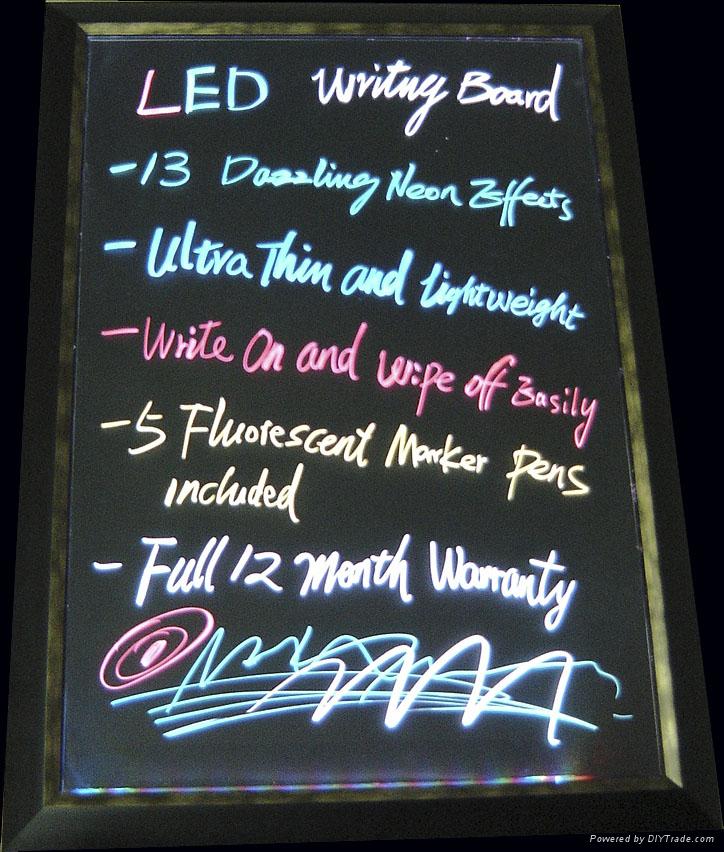 LED Writng Board
-13 Dazzling Neon Effects
- Ultra Thin and Lightweight
- Write On and wipe off Easily
-5 Fluorescent Marker Pens
included
- Full 12 Month Warranty
Powered by DIYTrade.com